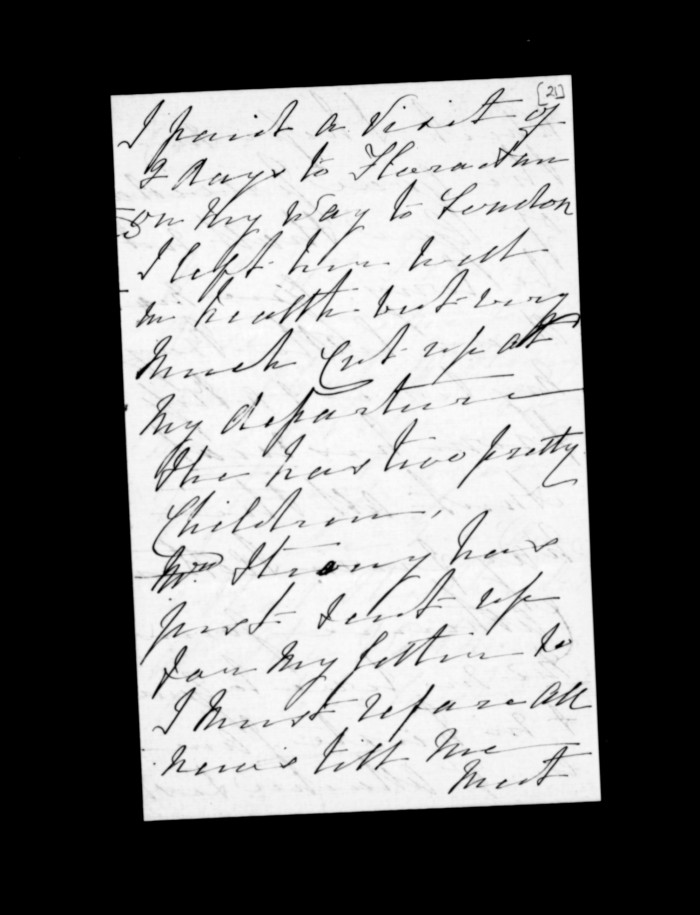 [2]
I paid a visit of
2 days to Flora
on my way to London
I left her well
in health but very
much cut up at
my departure
She has two pretty
Children,
Mrs Strong has
just sent up
for my letter so
I must refuse all
news till we
meet